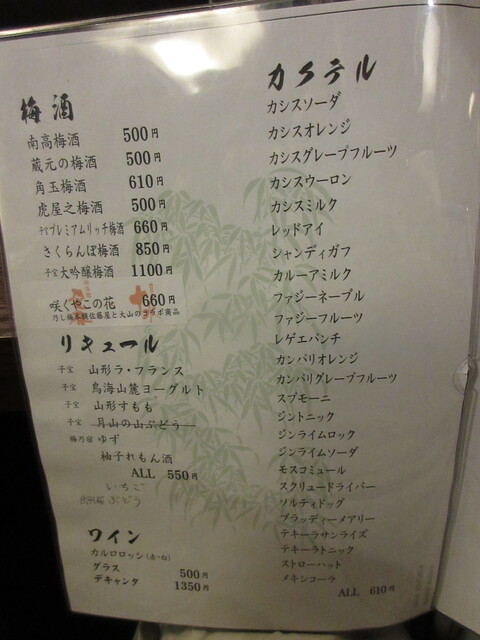 梅酒
南高梅酒 500円
蔵元の梅酒 500円
角玉梅酒 610円
虎屋之梅酒 500円
子宝プレミアムリッチ梅酒 660円
さくらんぼ梅酒 850円
子宝大吟醸梅酒 1100円
咲くやこの花 660円
乃し梅本舗佐藤屋と大山のコラボ商品
リキュール
子宝 山形ラ・フランス
子宝 鳥海山麓ヨーグルト
子宝 山形すもも
子宝 月山の山ぶどう
梅乃宿 ゆず
柚子れもん酒
ALL 550円
いちご
ぶどう
ワイン
カルロロッシ(赤・白)
グラス 500円
デキャンタ 1350円
カクテル
カシスソーダ
カシスオレンジ
カシスグレープフルーツ
カシスウーロン
カシスミルク
レッドアイ
シャンディガフ
カルーアミルク
ファジーネーブル
ファジーフルーツ
レゲエパンチ
カンパリオレンジ
カンパリグレープフルーツ
スプモーニ
ジントニック
ジンライムロック
ジンライムソーダ
モスコミュール
スクリュードライバー
ソルティドッグ
ブラッディーメアリー
テキーラサンライズ
テキーラトニック
ストローハット
メキシコーラ
ALL 610円